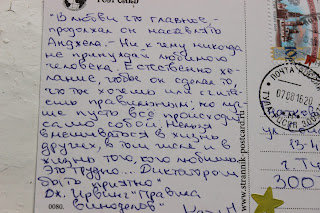 "В любви это главное, -
продолжал он наставлять
Анджела. - Ни к чему никогда
не принуждай любимого
человека. Естественно же-
лание, чтобы он сделал то,
что ты хочешь или счита-
ешь правильным; но луч-
ше, пусть всё происходит
само собой. Нельзя
вмешиваться в жизнь
других, в том числе и в
жизнь того, кого любишь.
Это трудно... Диктатором
быть приятно"
Дж. Ирвинг "Правила
виноделов"
0080.
www.strannik-postcard.ru
ПОЧТА РОССИИ
070816 20
ТУЛА
300